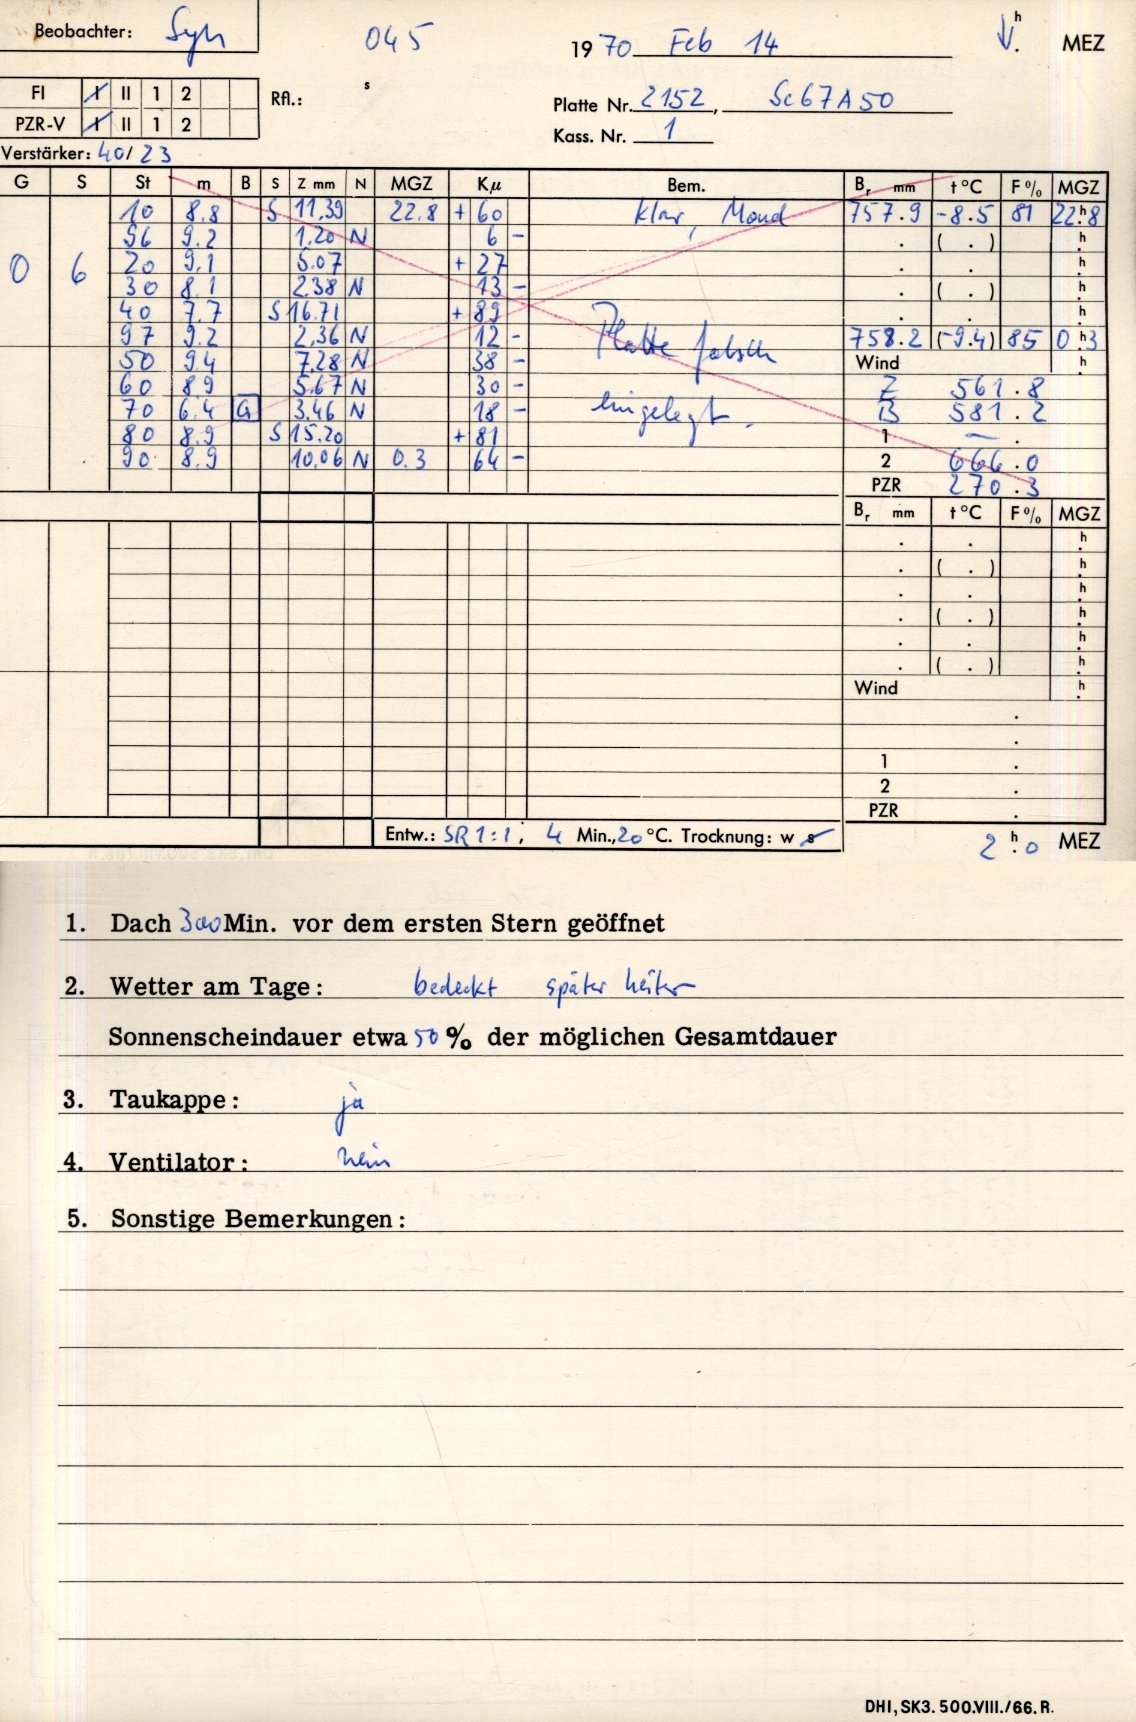 Beobachter: Syh 045 1970 Feb 14 h . MEZ
FI I II 1 2 Rfl.: s Platte Nr. 2152, Sc67A50
PZR-V I II 1 2 Kass. Nr. 1
Verstärker: 40/23
G S St m B S Z mm N MGZ Kμ Bem. Br mm t °C F % MGZ
10 8.8 S 11,39 22.8 + 60 klar, Mond 757.9 -8.5 81 22h.8
96 9.2 1.20 N 6 - . ( . ) h.
0 6 20 9,1 5.07 + 27 . . h.
30 8,1 2.38 N 13 - . ( . ) h.
40 7.7 S 16.71 + 89 . . h.
97 9.2 2,36 N 12 - Platte falsch 758.2 (-9.4) 85 0h.3
50 9.4 7.28 N 38 - Wind h.
60 8.9 5.67 N 30 - Z 561.8
70 6.4 G 3.46 N 18 - eingelegt. B 581.2
80 8.9 S 15.20 + 81 1 — .
90 8.9 10,06 N 0.3 64 - 2 666.0
PZR 270.3
Br mm t °C F % MGZ
. . h.
. ( . ) h.
. . h.
. ( . ) h.
. . h.
. ( . ) h.
Wind h.
.
.
1 .
2 .
PZR .
Entw.: SR 1:1; 4 Min., 20 °C. Trocknung: w s 2h.0 MEZ
1. Dach 300 Min. vor dem ersten Stern geöffnet
2. Wetter am Tage: bedeckt später heiter
Sonnenscheindauer etwa 50 % der möglichen Gesamtdauer
3. Taukappe: ja
4. Ventilator: nein
5. Sonstige Bemerkungen:
DHI, SK3. 500.VIII./66. R.